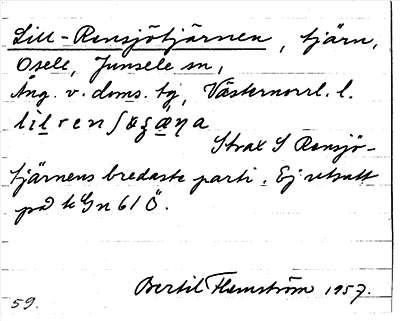 Lill-Rensjötjärnen, tjärn,
Åsele, Junsele sn,
Ång. v. doms. tg, Västernorrl. l.
Strax S Rensjö-
tjärnens bredaste parti. Ej utsatt
på k Gn 61 Ö.
Bertil Flemström 1957.
59.